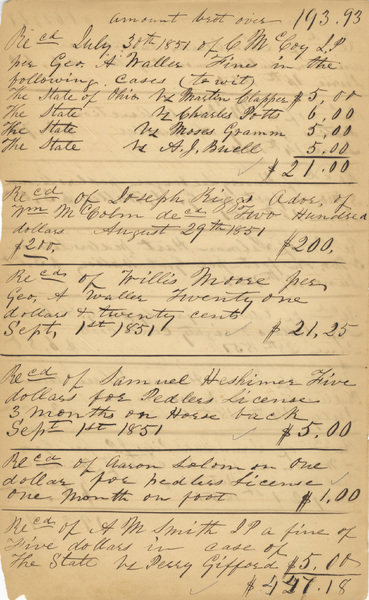 amount brot over 193.93
Recd July 30th 1851 of C McCoy J.P
per Geo, A Waller Fines in the
following cases (to wit)
The State of Ohio Vs Martin Clapper $5,00
The State Vs Charles Potts 6,00
The State Vs Moses Gramm 5,00
The State Vs A. J. Buell 5.00
$21.00
Recd of Joseph Riggs Ador, of
Wm McColm decd Two Hundred
dollars August 29th 1851 $200,
$210,
Recd of Willis Moore per
Geo, A Waller Twenty one
dollars & twenty cent
Sept, 1st 1851 $21,25
Recd of Samuel Heshimer Five
dollars for Pedlers License
3 months on Horse back
Sept 1st 1851 $5.00
Recd of Aaron Solomon one
dollar for Pedlers License
one Month on foot $1.00
Recd of A M Smith J P a fine of
Five dollars in case of
The State Vs Perry Gifford $5,00
$447.18